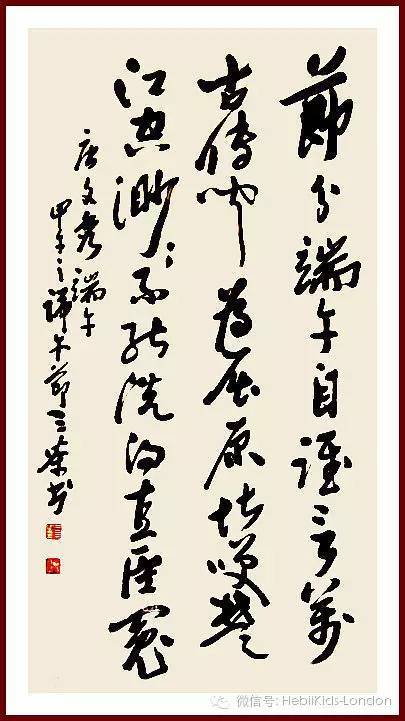 節分端午自誰言萬
古傳聞為屈原堪笑楚
江空渺渺不能洗得直臣冤
唐文秀端午
甲午之端午節書
微信号: HebiiKids-London